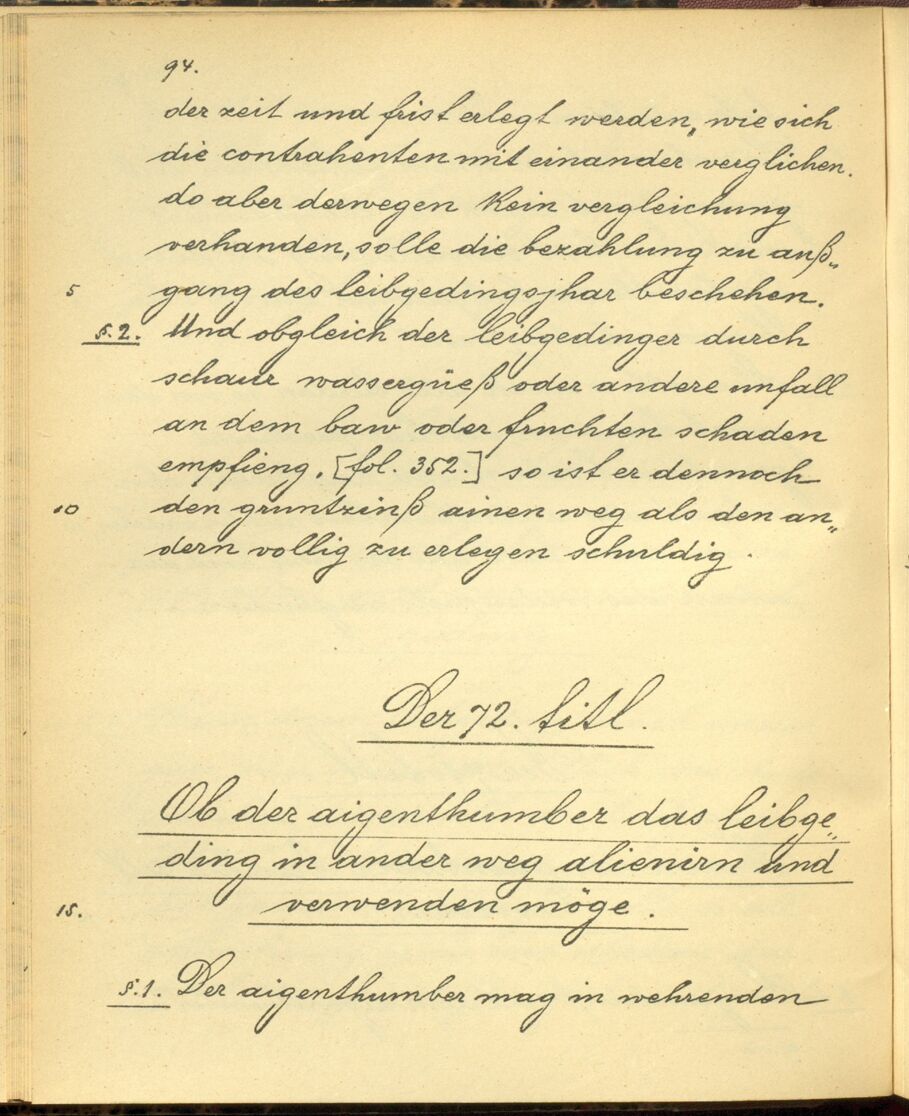 94.
der zeit und frist erlegt werden, wie sich
die contrahenten mit einander verglichen.
do aber derwegen kein vergleichung
verhanden, solle die bezahlung zu auß„
5 gang des leibgedingsjhar beschehen.
§. 2. Und obgleich der leibgedinger durch
schaur wassergüeß oder andere unfall
an dem baw oder fruchten schaden
empfieng, [fol. 352.] so ist er dennoch
10 den gruntzinß ainen weg als den an„
dern vollig zu erlegen schuldig.
Der 72. titl.
Ob der aigenthumber das leibge„
ding in ander weg alienirn und
15. verwenden möge.
§. 1. Der aigenthumber mag in wehrenden